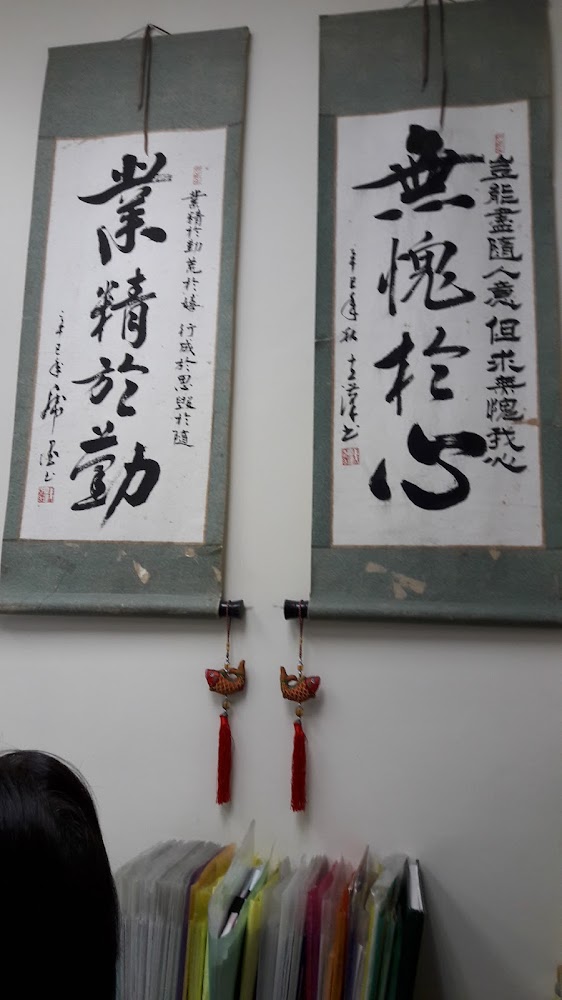 豈能盡隨人意但求無愧我心
無愧於心
辛巳年秋
業精於勤荒於嬉 行成於思毀於隨
業精於勤
辛巳年